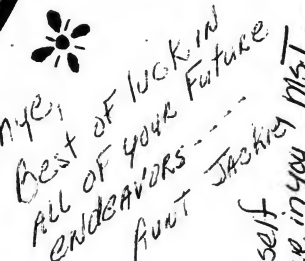 nye,
Best of luck in
ALL OF your Future
endeavors----
Aunt Jackiey
self
in you Ms.